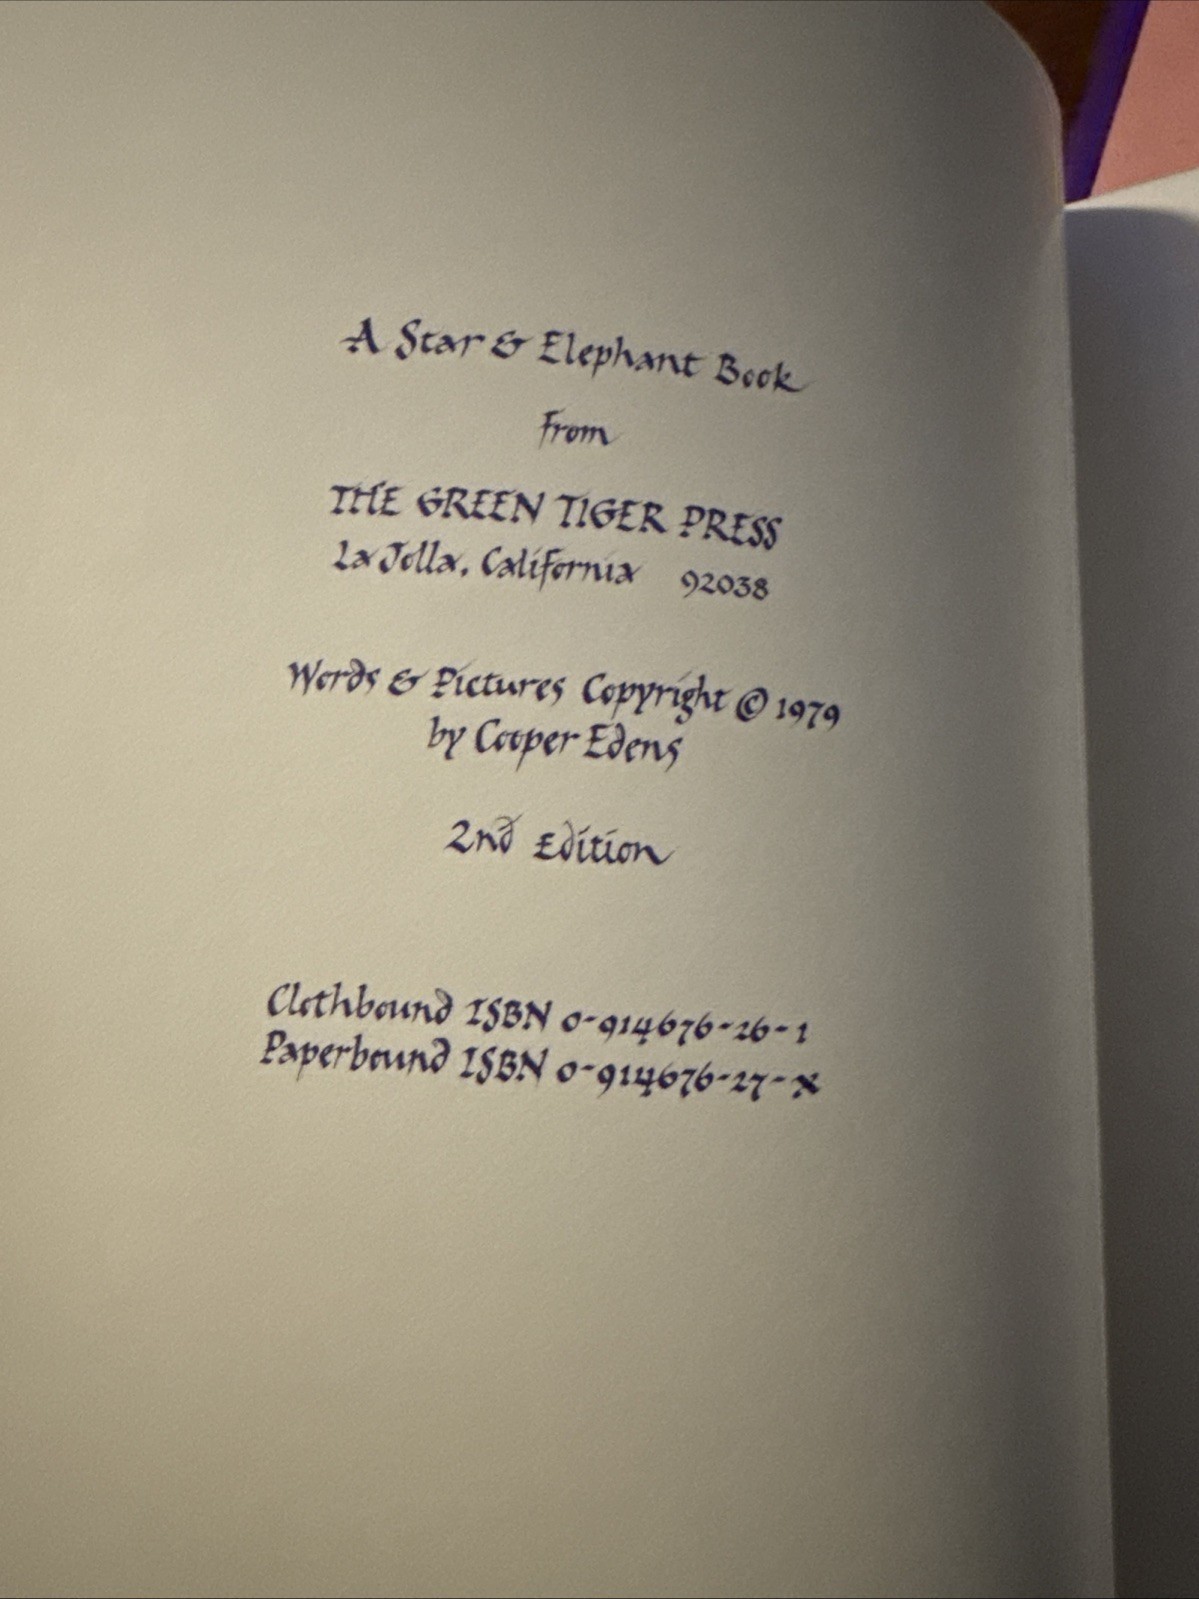 A Star & Elephant Book
from
THE GREEN TIGER PRESS
La Jolla, California 92038
Words & Pictures Copyright © 1979
by Cooper Edens
2nd Edition
Clothbound ISBN 0-914676-26-1
Paperbound ISBN 0-914676-27-X